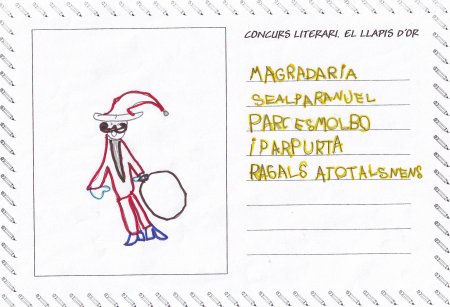 CONCURS LITERARI. EL LLAPIS D'OR
MAGRADARÍA
SEALPARANUEL
PARCESMOLBO
IPARPURTA
RAGALS ATOTALSNENS